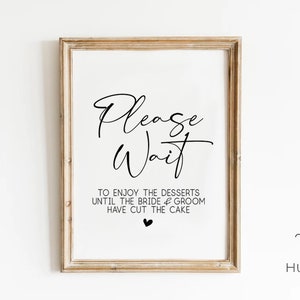 Please
Wait
TO ENJOY THE DESSERTS
UNTIL THE BRIDE & GROOM
HAVE CUT THE CAKE